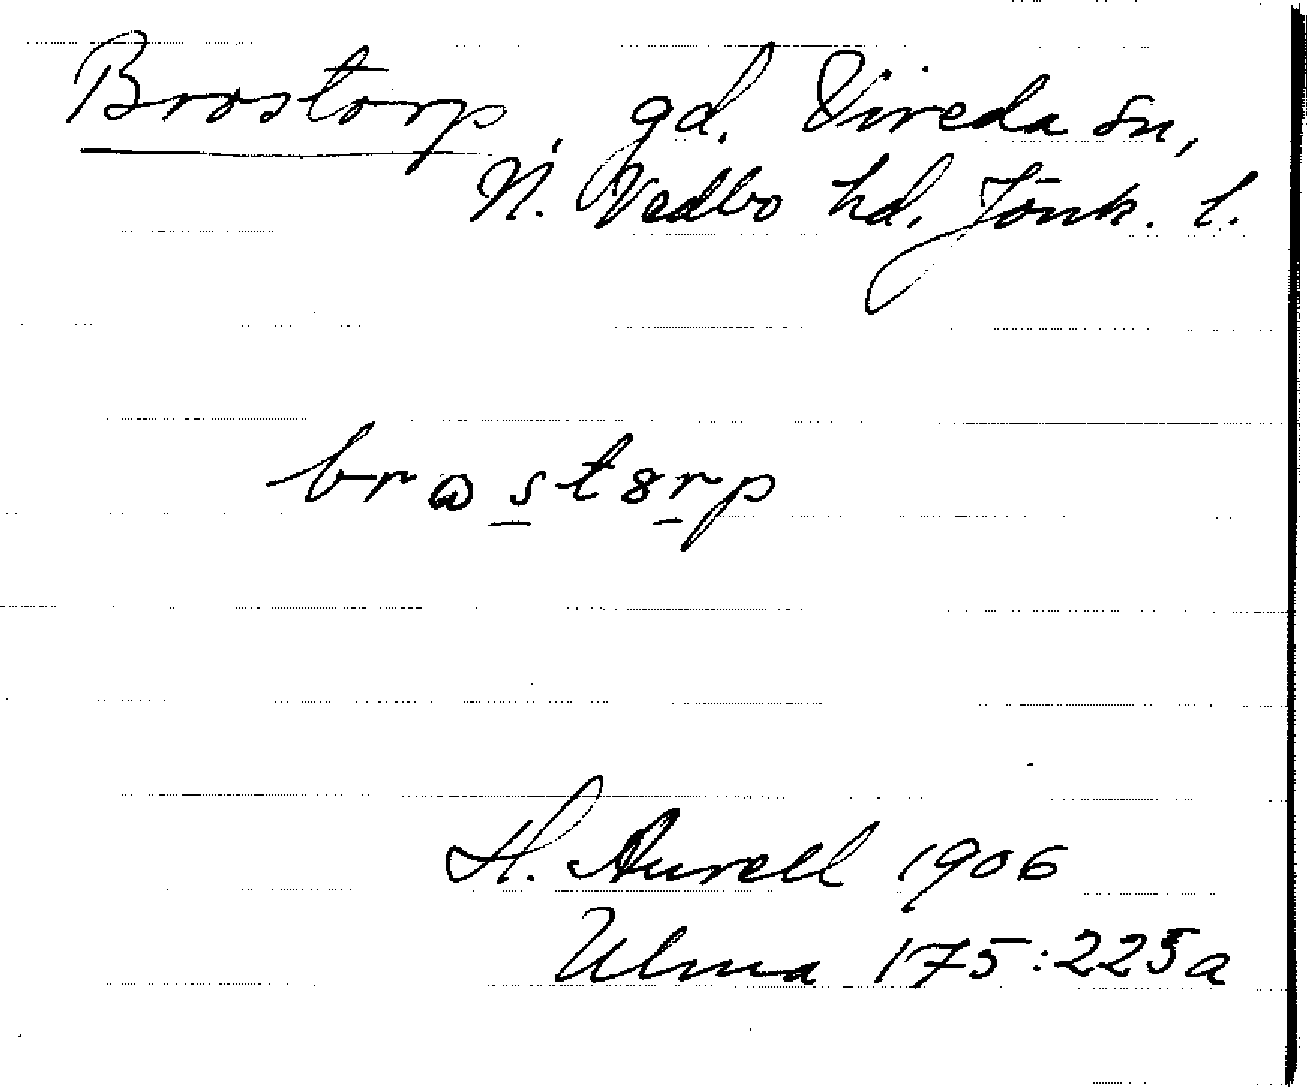 Brostorp, gd. Vireda sn,
N. Vedbo hd. Jönk. l.
brostorp
H. Aurell 1906
Ulma 175:225a